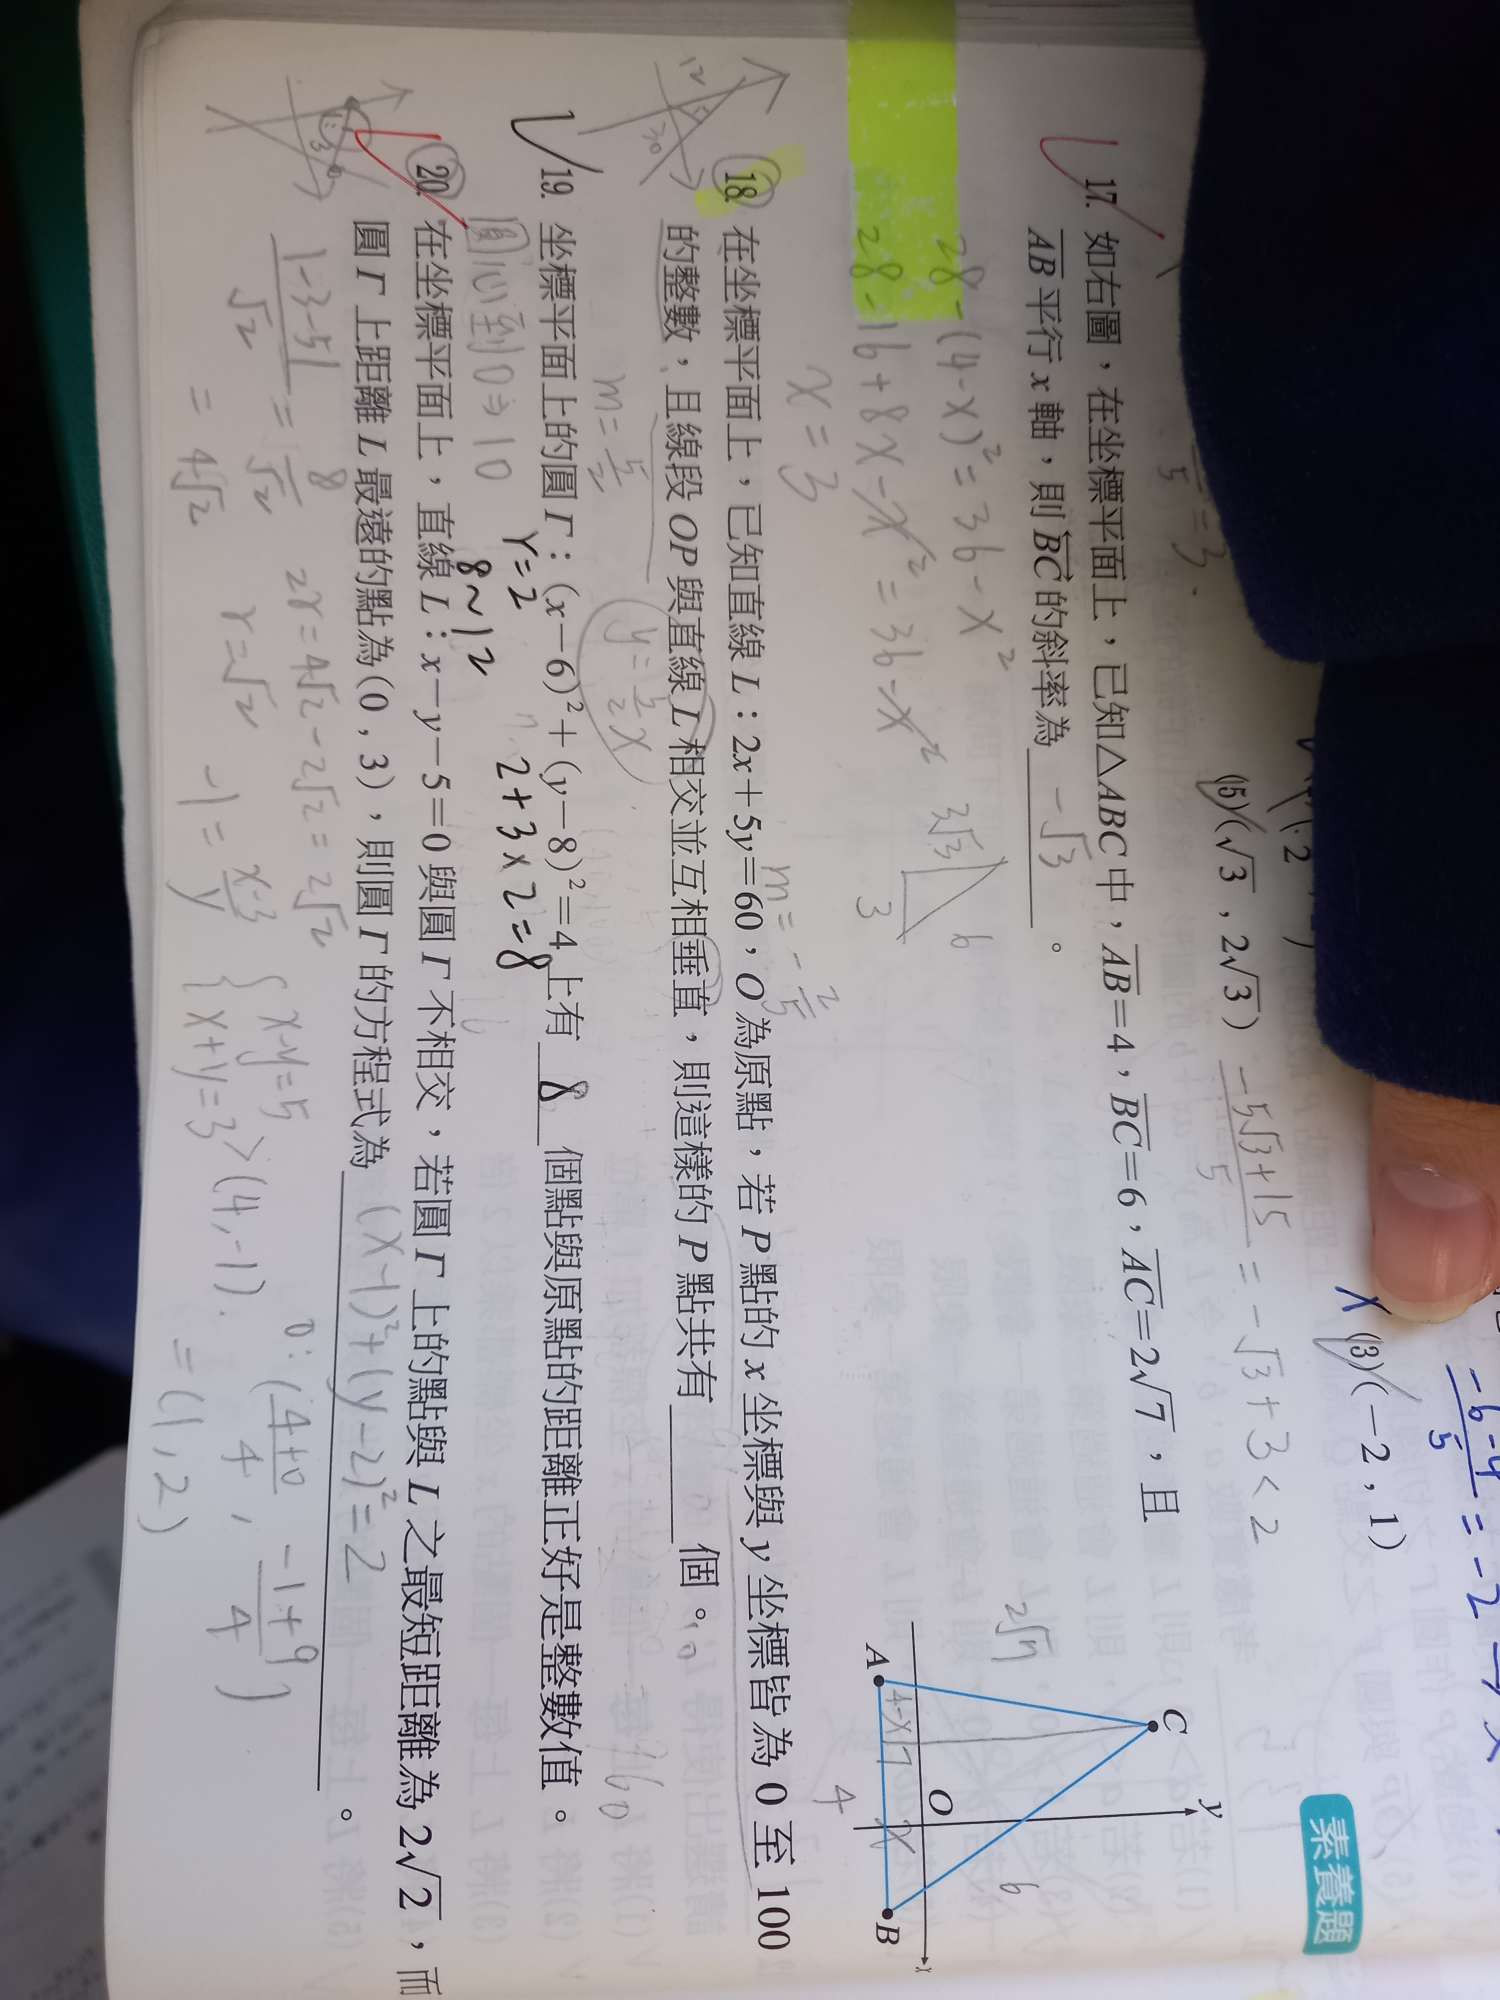 素養題
(3)(-2,1)
(5)(√3,2√3)
17. 如右圖，在坐標平面上，已知△ABC中，AB=4，BC=6，AC=2√7，且
AB平行x軸，則BC的斜率為 -√3 。
28-(4-x)²=36-x²
28-16+8x-x²=36-x²
x=3
3√3
6
3
2√7
C
A
B
O
y
x
4-x
x
4
6
m=-2/5
18. 在坐標平面上，已知直線L：2x+5y=60，O為原點，若P點的x坐標與y坐標皆為0至100
的整數，且線段OP與直線L相交並互相垂直，則這樣的P點共有 個。
12
30
m=5/2
y=5/2x
19. 坐標平面上的圓Γ：(x-6)²+(y-8)²=4上有 8 個點與原點的距離正好是整數值。
圓心到0⇒10
r=2
8~12
2+3×2=8
20. 在坐標平面上，直線L：x-y-5=0與圓Γ不相交，若圓Γ上的點與L之最短距離為2√2，而
圓Γ上距離L最遠的點為(0,3)，則圓Γ的方程式為 (x-1)²+(y-2)²=2 。
|-3-5|/√2=8/√2
=4√2
2r=4√2-2√2=2√2
r=√2
-1=x-3/y
{x-y=5
{x+y=3>(4,-1).
0:(4+0/4,-1+9/4)
=(1,2)